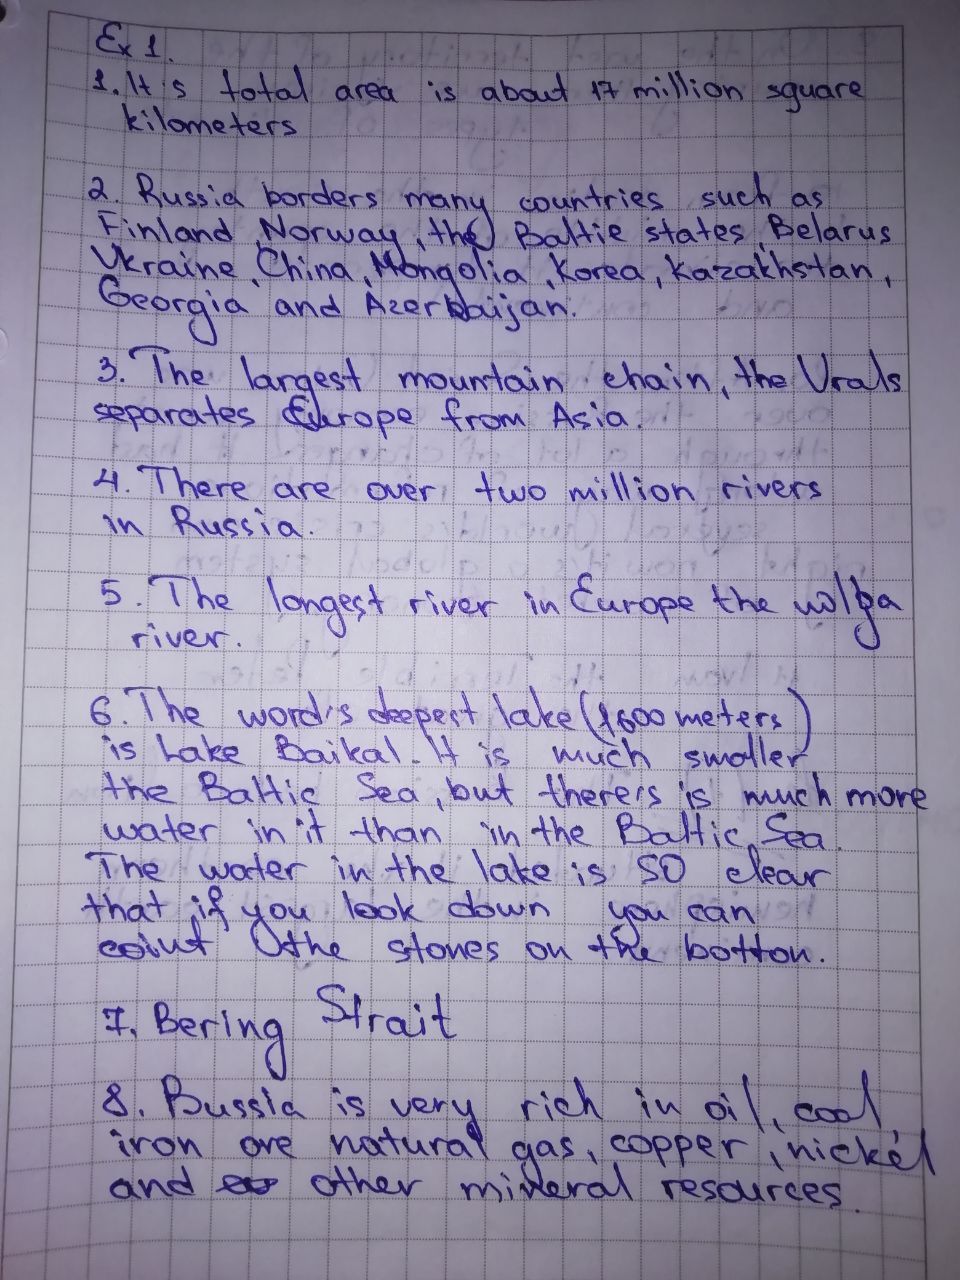 Ex 1.
1. It s total area is about 17 million sguare
kilometers
2. Russia borders many countries such as
Finland, Norway, the Baltie states, Belarus
Ukraine, China, Mongolia, Korea, Kazakhstan,
Georgia and Azerbaijan.
3. The largest mountain chain, the Urals
separates Europe from Asia.
4. There are over two million rivers
in Russia.
5. The longest river in Europe the wolga
river.
6. The word's deepest lake (1600 meters)
is Lake Baikal. It is much smaller
the Baltic Sea, but there's is much more
water in it than in the Baltic Sea.
The water in the lake is so clear
that if you look down you can
coiut the stones on the botton.
7. Bering Strait
8. Bussia is very rich in oil, cool,
iron ore natural gas, copper, nickel
and other mineral resources.